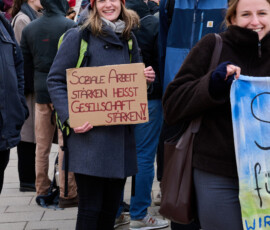 SOZIALE ARBEIT
STÄRKEN HEISST
GESELLSCHAFT
STÄRKEN!
S
fü
WIR